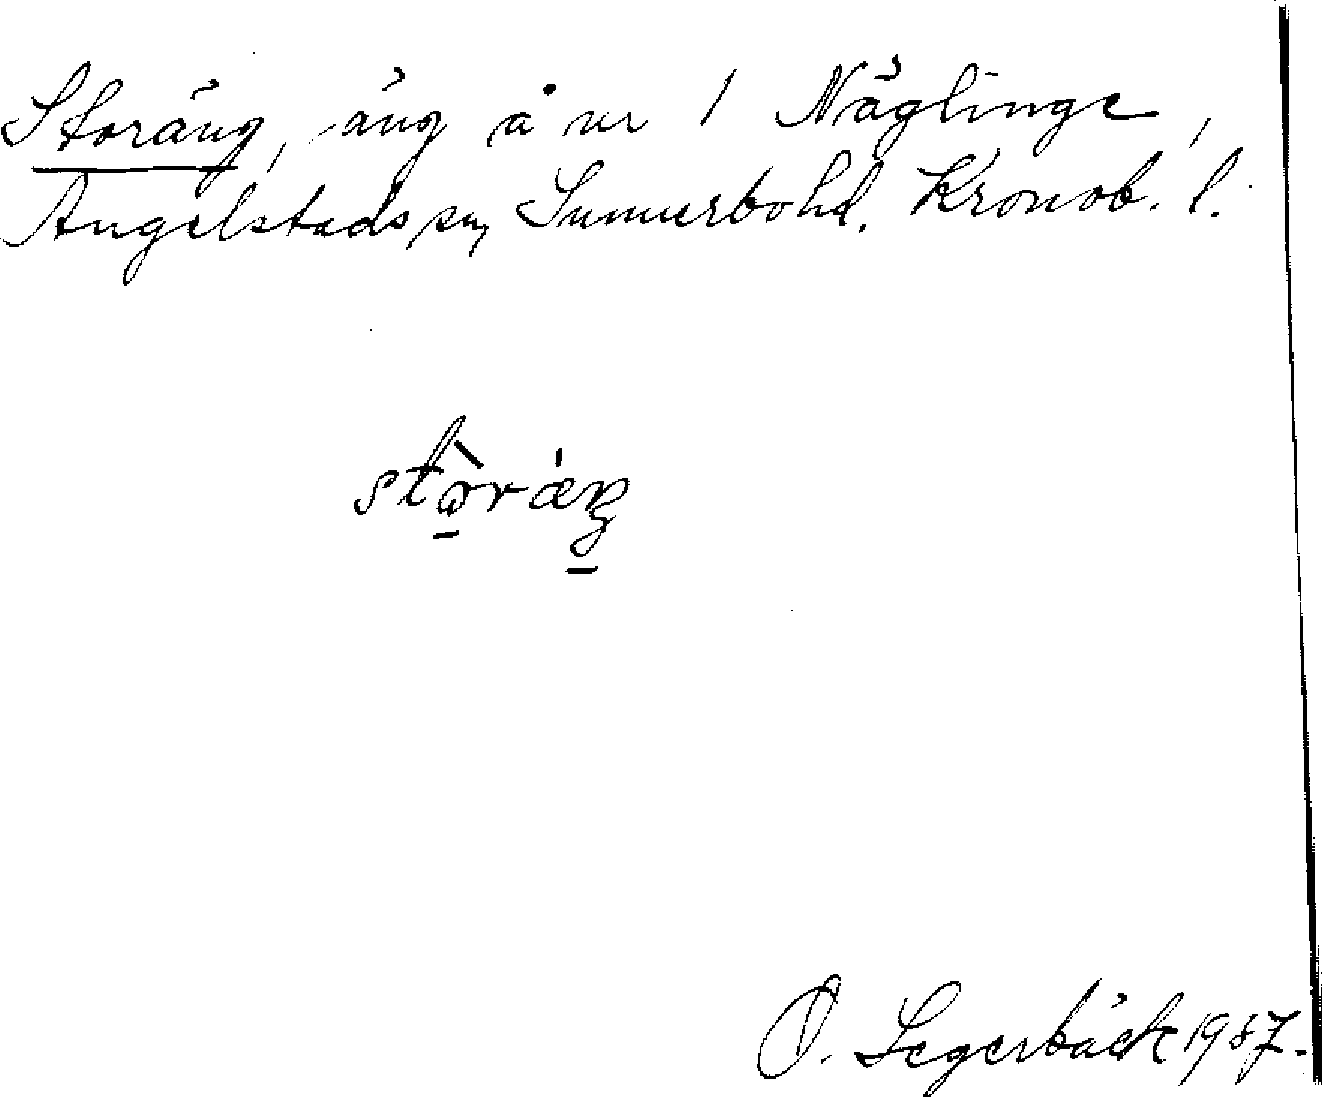 Storäng, äng å nr 1 Näglinge,
Angelstads sn, Sunnerbo hd. Kronob. l.
stòráŋ
O. Segerbäck 1937.